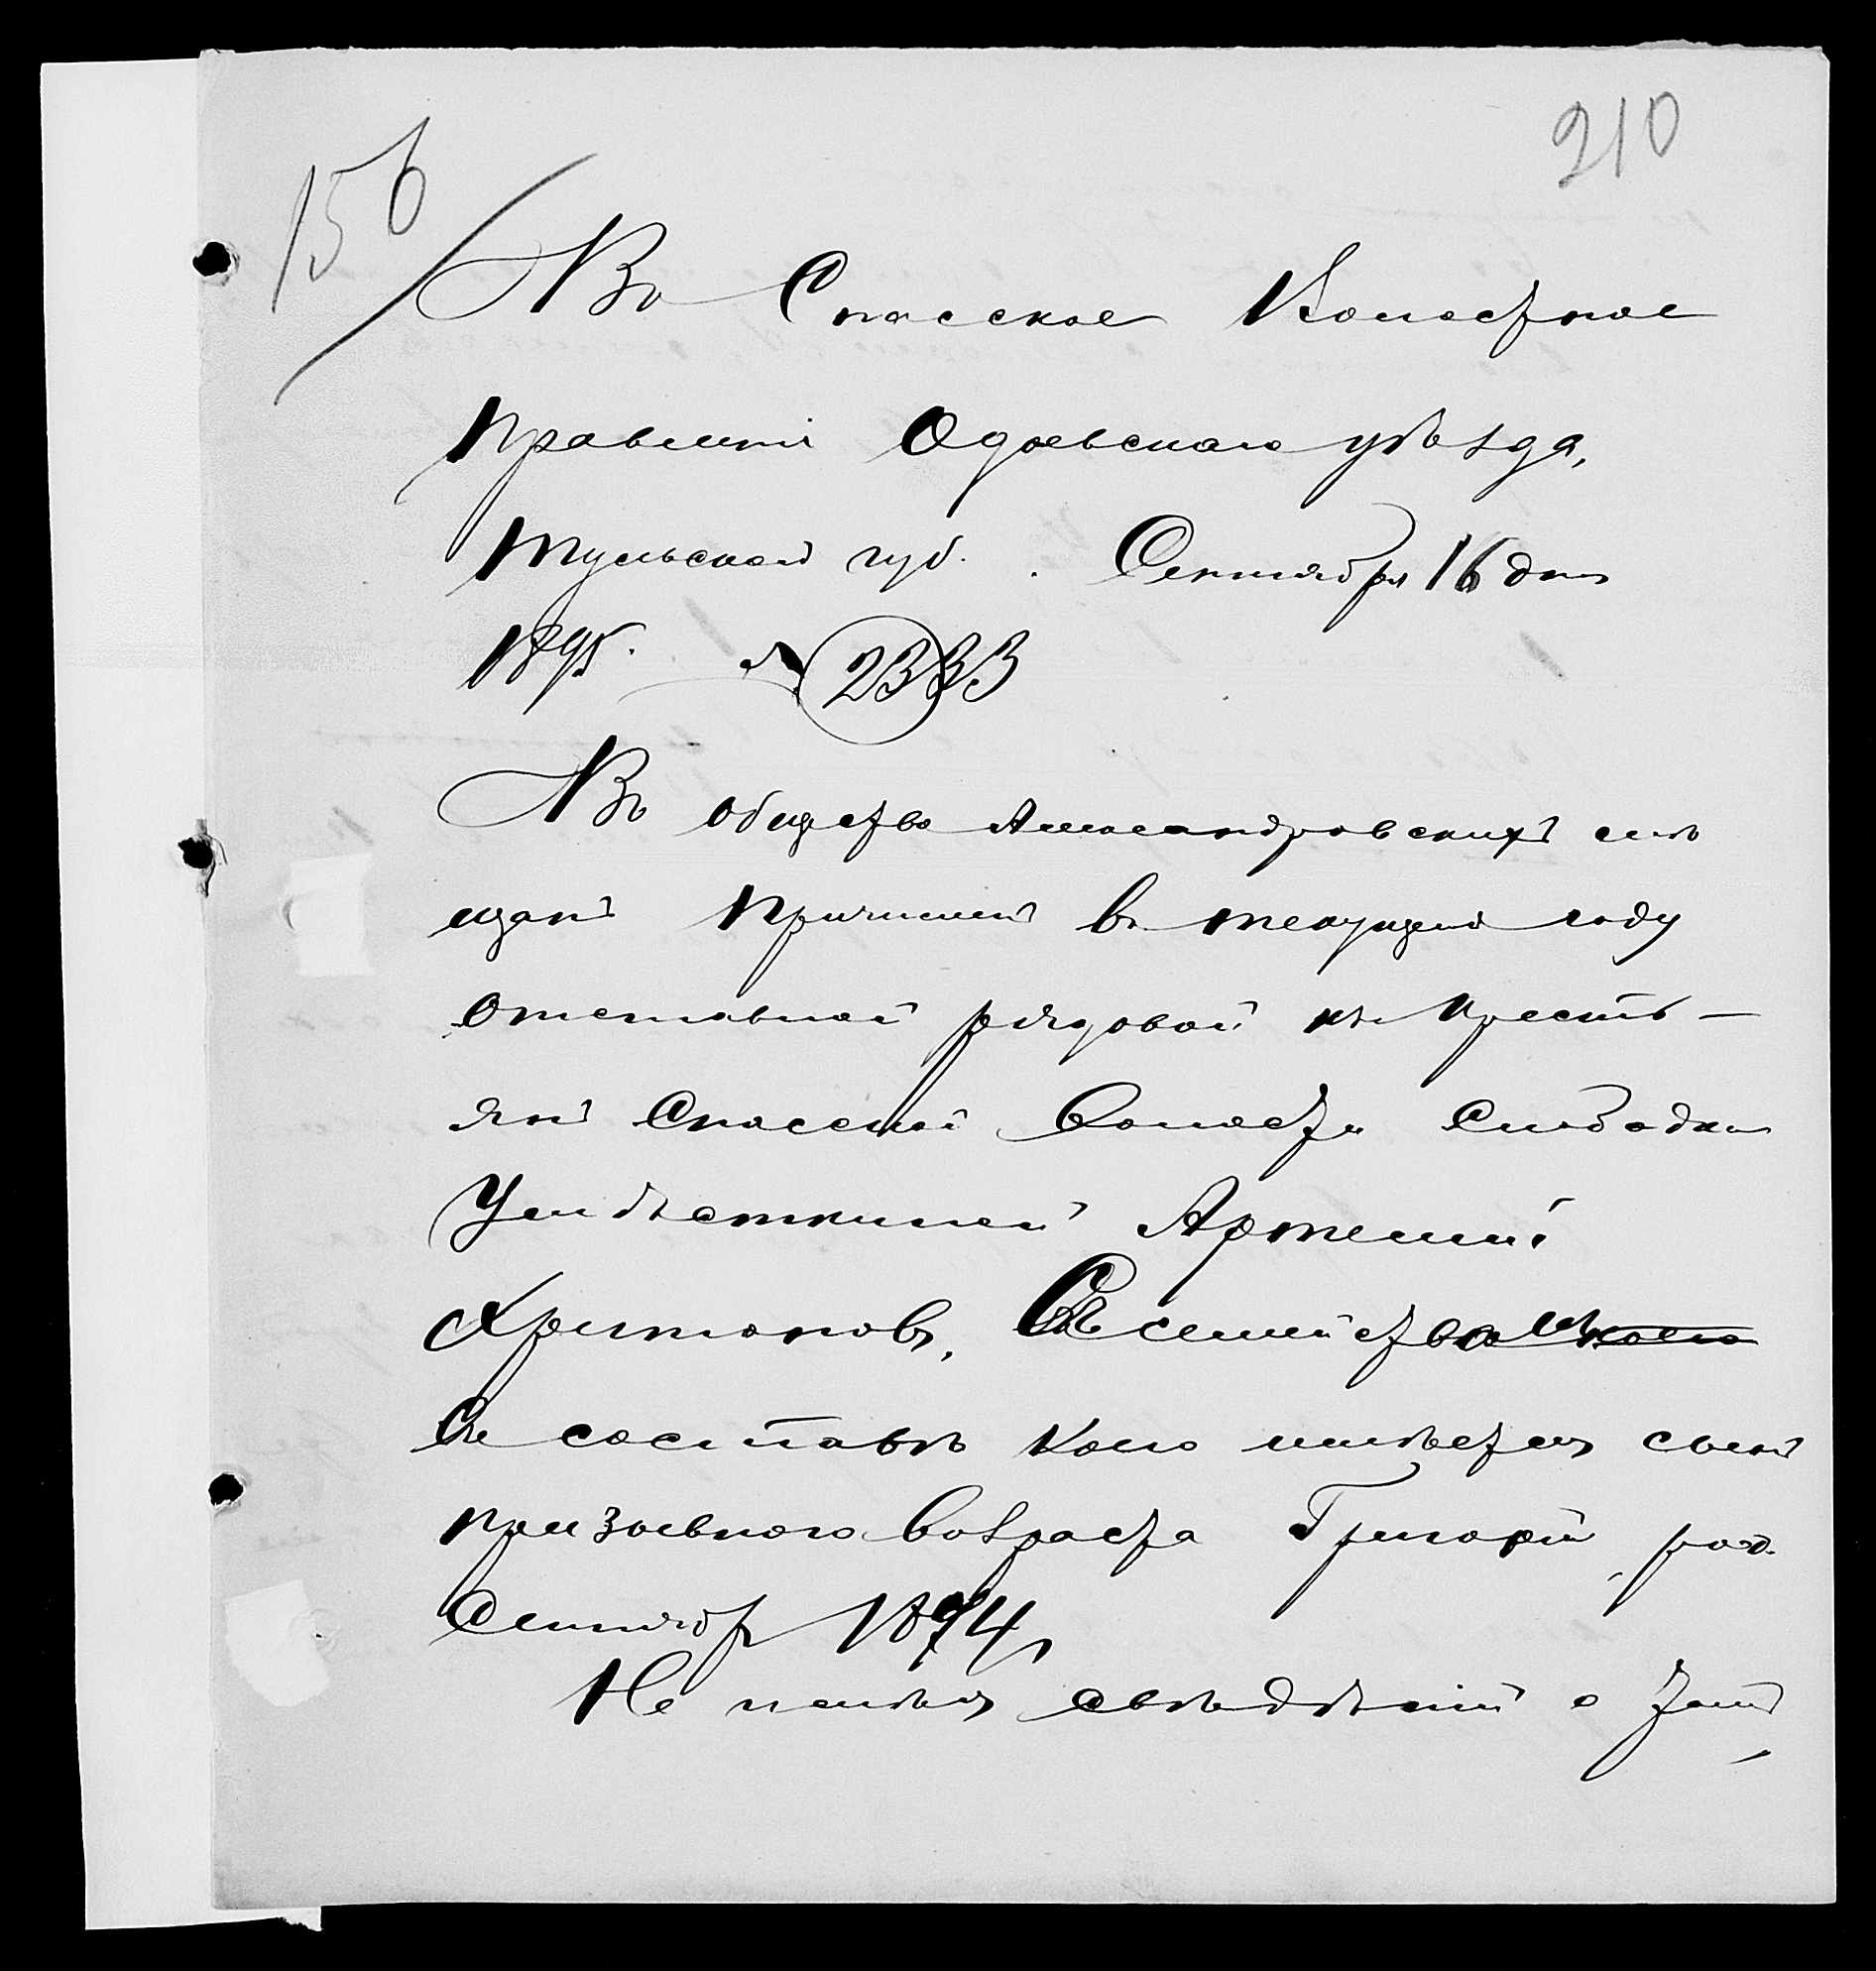 210
156
Въ Спасское Волостное
Правленіе Одоевскаго уѣзда,
Тульской губ. Сентября 16 дня
1895. № 2333
Въ общество Александровскихъ мѣ
щанъ причисленъ въ текущемъ году
отставной рядовой изъ крестъ-
янъ Спасской волости Слободки
Артемій
Харитоновъ, семейства
Въ составѣ коего имѣется сынъ
призывного возраста Григорій, род.
Сентябр 1874,
Не имѣя свѣдѣній о томъ,